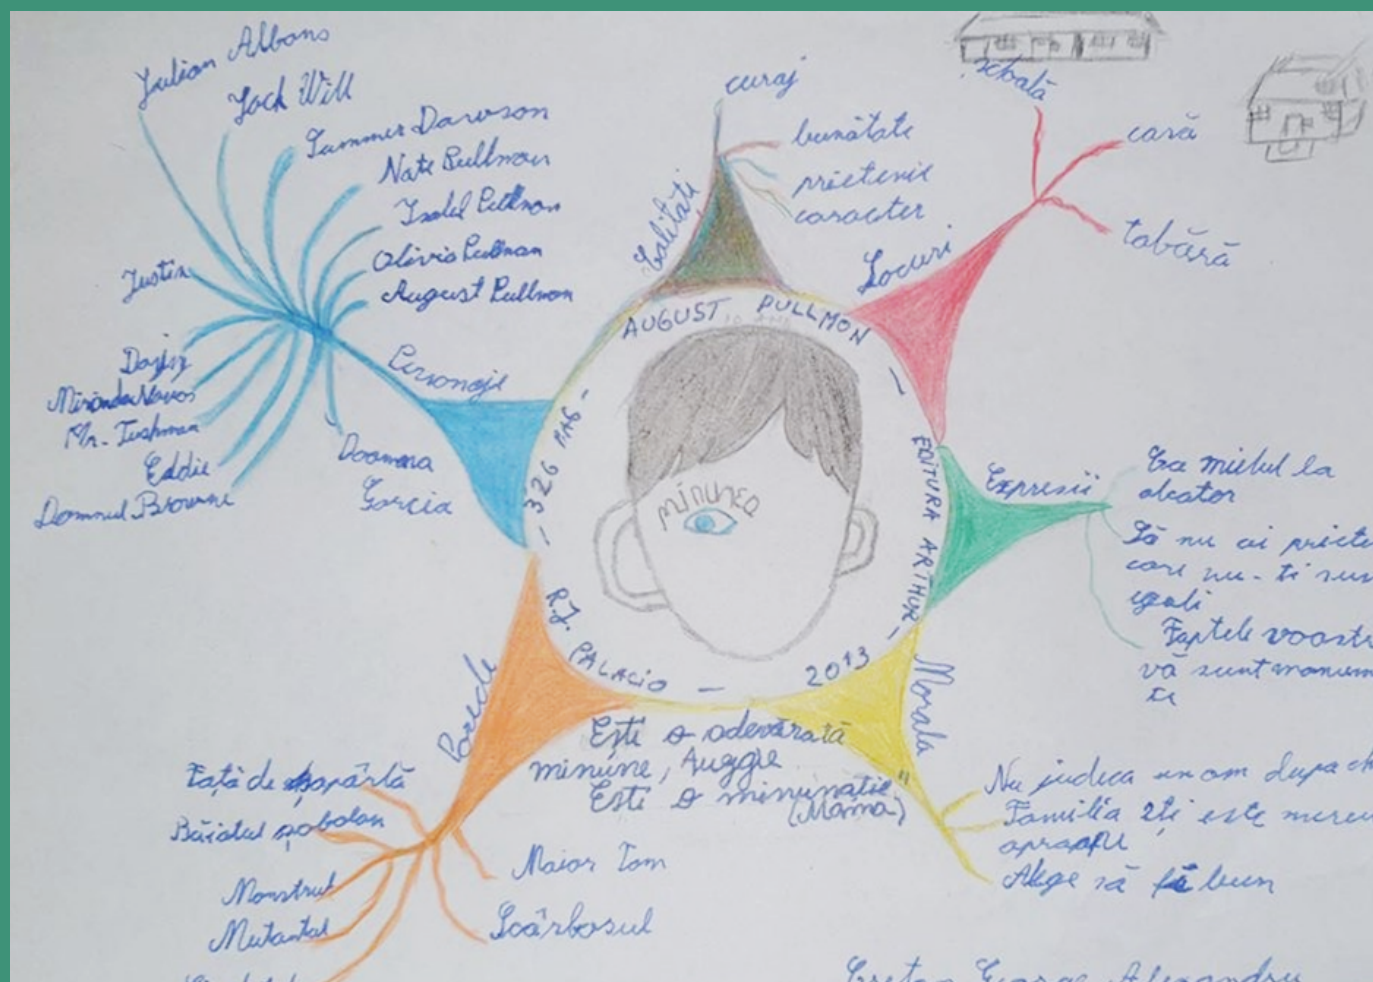 Julian Albans
Jack Will
Summer Dawson
Nate Pullman
Isabel Pullman
Olivia Pullman
August Pullman
Justin
Miranda Navas
Mr. Tushman
Eddie
Domnul Browne
Doamna
Garcia
Personaje
Calitati
curaj
bunătate
prietenie
caracter
Locuri
școală
casă
tabără
AUGUST PULLMON
10 ANI
EDITURA ARTHUR
2013
R.J. PALACIO
326 PAG
minunea
Expresii
Ca mielul la
Să nu ai priete
care nu-ti sun
egali
Faptele voastr
vă sunt monum
te
Morala
Nu judeca un om dupa
Familia îți este mereu
aproape
Alege să fii bun
Ești o adevărată
minune, Auggie
Ești o minunație"
(Mama)
Porecle
Față de șopârlă
Băiatul șobolan
Monstrul
Mutantul
Maior Tom
Scârbosul
George Alexandru